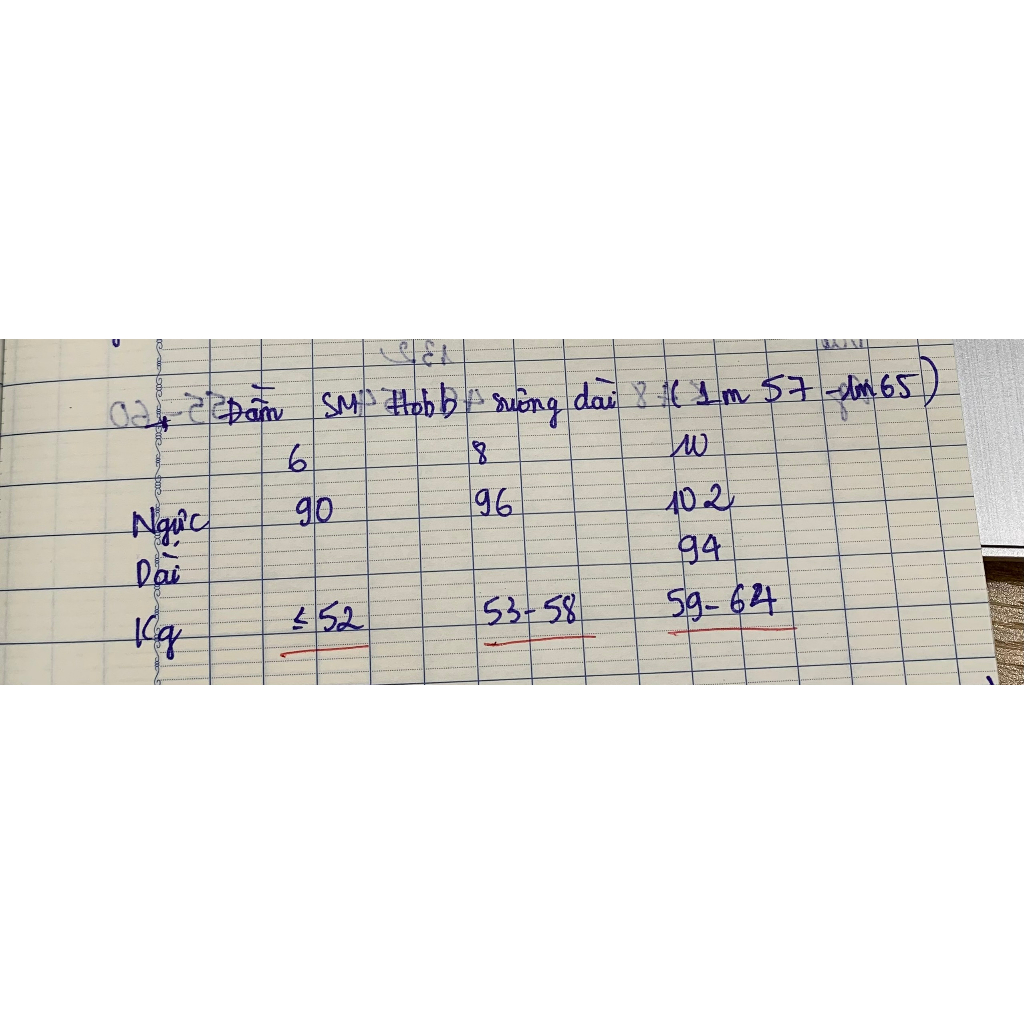 + Đầm SM Hobb suông dài (1m 57 - 1m 65)
6 8 10
Ngực 90 96 102
Dài 94
Kg ≤ 52 53 - 58 59 - 64